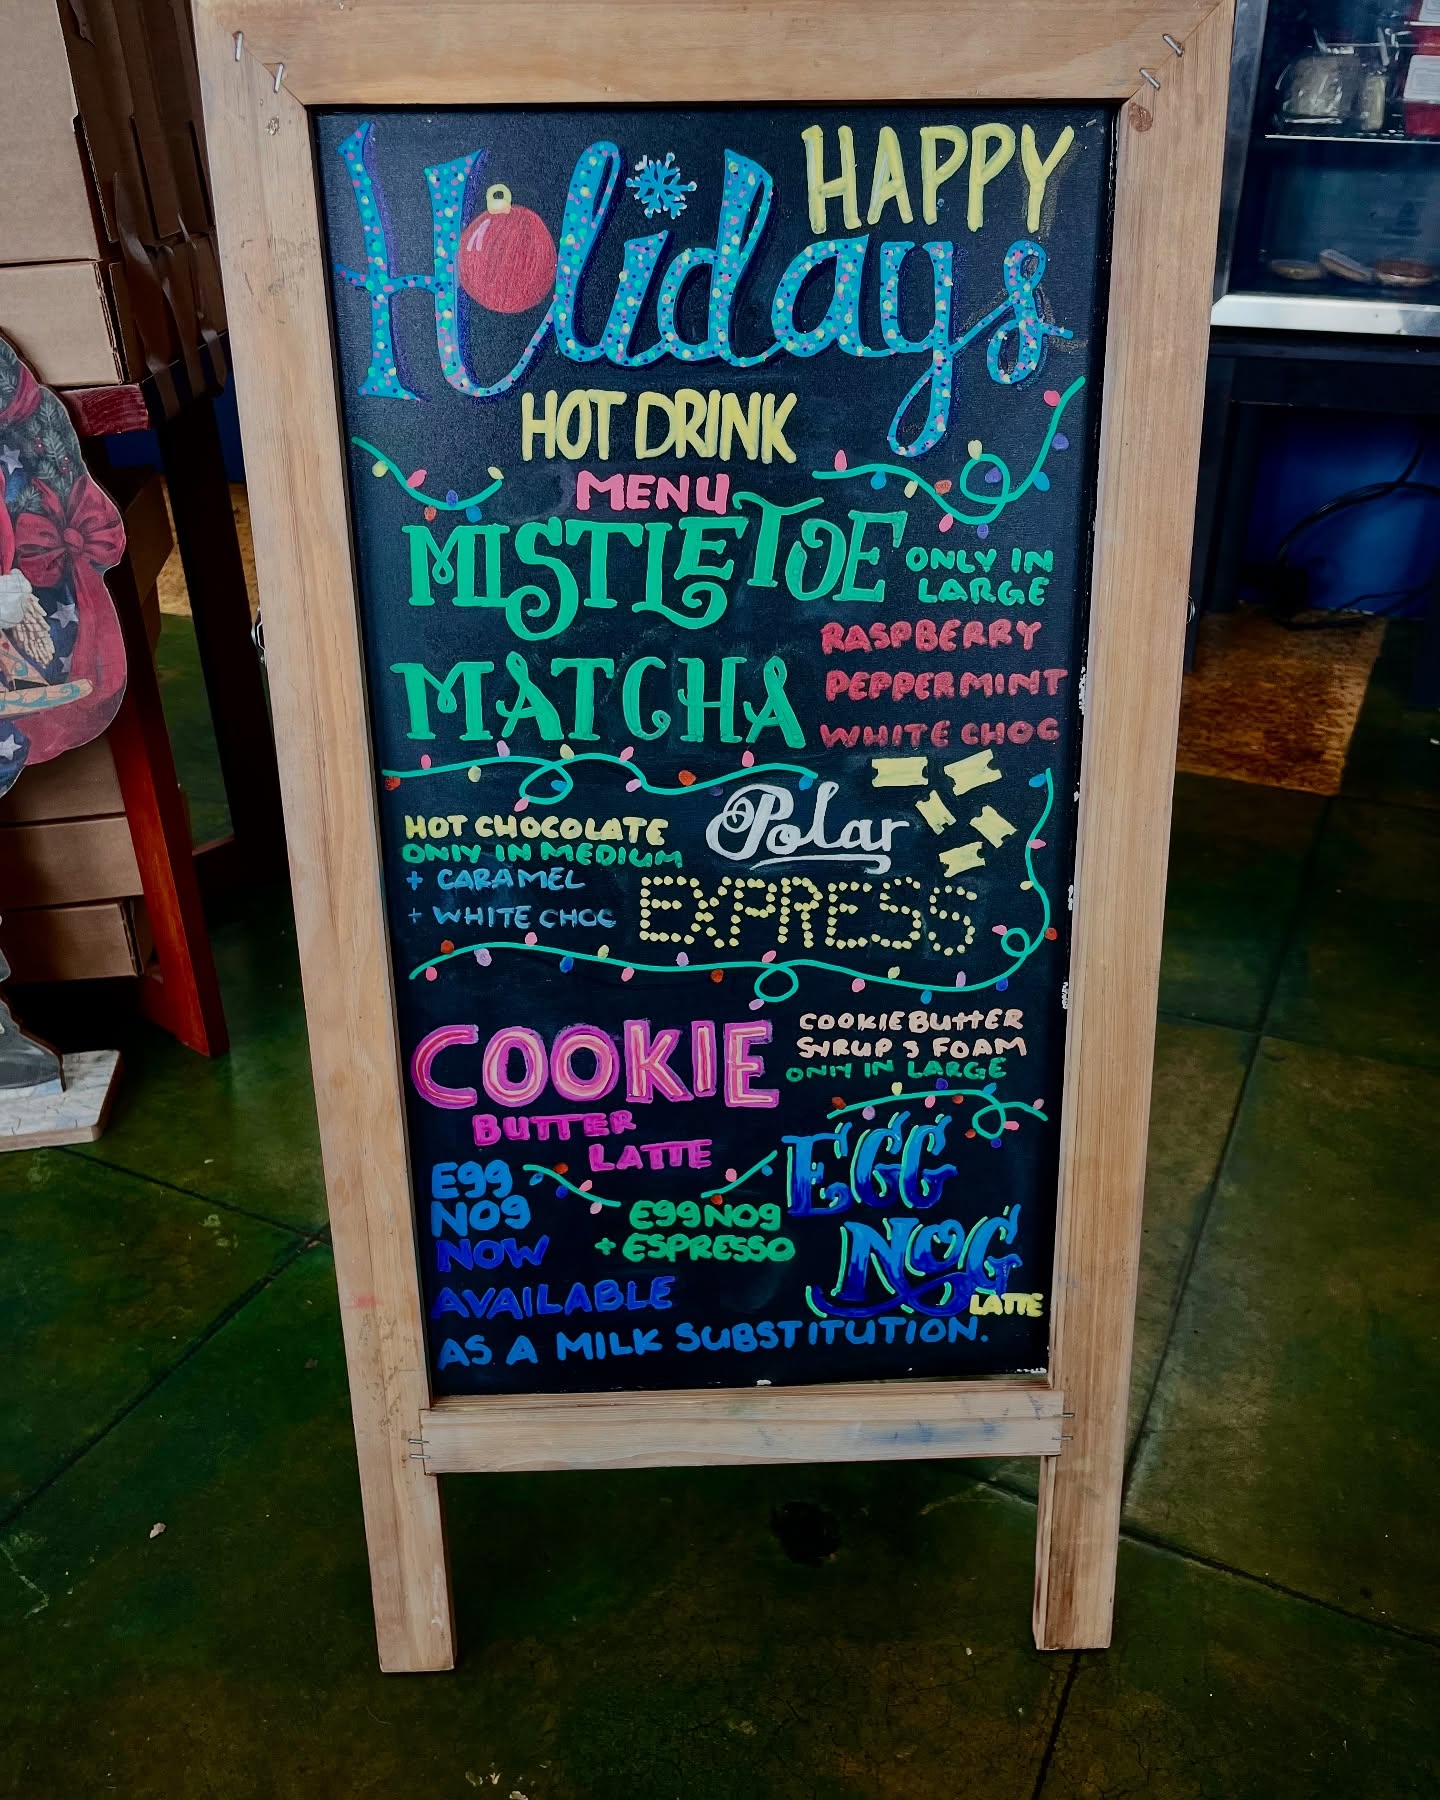 HAPPY
Holidays
HOT DRINK
MENU
MISTLETOE
ONLY IN
LARGE
MATCHA
RASPBERRY
PEPPERMINT
WHITE CHOC
HOT CHOCOLATE
ONLY IN MEDIUM
+ CARAMEL
+ WHITE CHOC
Polar
EXPRESS
COOKIE
BUTTER
LATTE
COOKIE BUTTER
SYRUP & FOAM
ONLY IN LARGE
EGG
NOG
LATTE
EGGNOG
+ ESPRESSO
EGG
NOG
NOW
AVAILABLE
AS A MILK SUBSTITUTION.